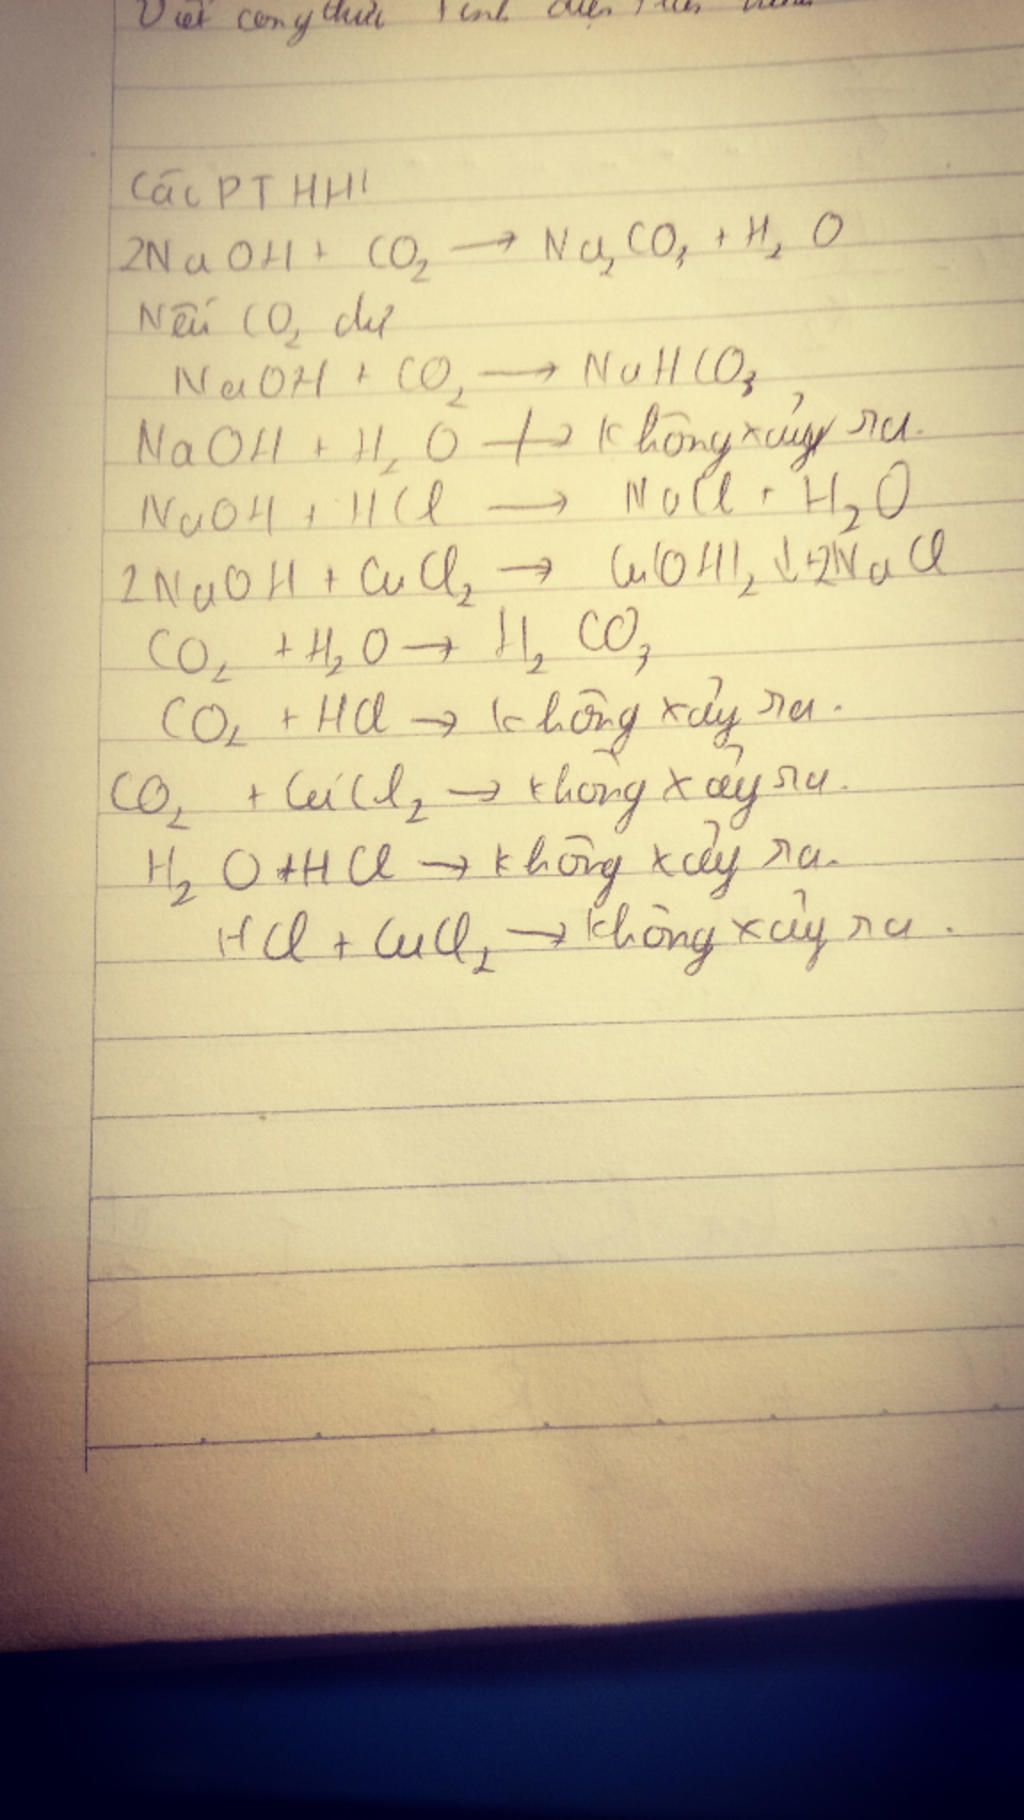 Viết công thức tính diện
Các PTHH
2NaOH + CO₂ → Na₂CO₃ + H₂O
Nếu CO₂ dư
NaOH + CO₂ → NaHCO₃
NaOH + H₂O -/-> không xảy ra.
NaOH + HCl → NaCl + H₂O
2NaOH + CuCl₂ → Cu(OH)₂ ↓ + 2NaCl
CO₂ + H₂O → H₂CO₃
CO₂ + HCl → không xảy ra.
CO₂ + CuCl₂ → không xảy ra.
H₂O + HCl → không xảy ra.
HCl + CuCl₂ → không xảy ra.